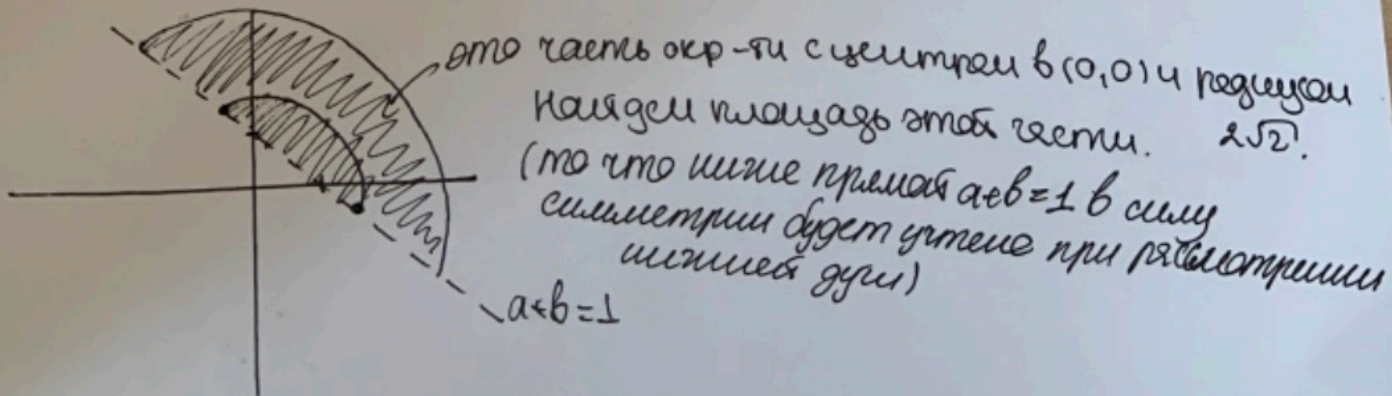 это часть окр-ти с центром в (0,0) и радиусом
2√2.
Найдем площадь этой части.
(то что ниже прямой a+b=1 в силу
симметрии будет учтено при рассмотрении
нижней дуги)
a+b=1